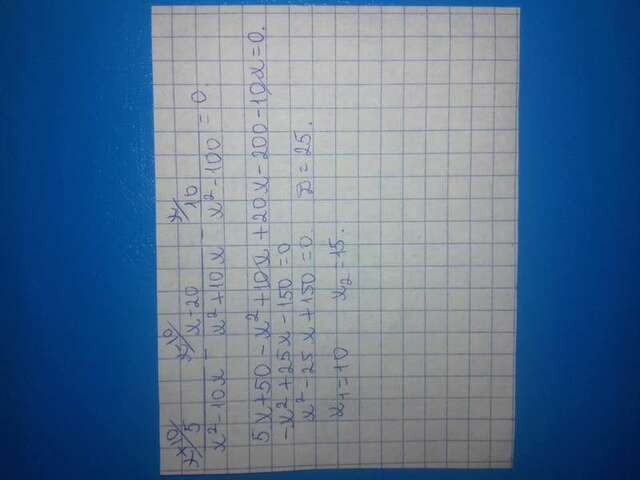 x+10/ 5 / x²-10x - x-10/ x-20 / x²+10x - x/ 10 / x²-100 = 0.
5x+50-x²+10x+20x-200-10x=0.
-x²+25x-150=0
x²-25x+150=0. D=25.
x₁=10 x₂=15.